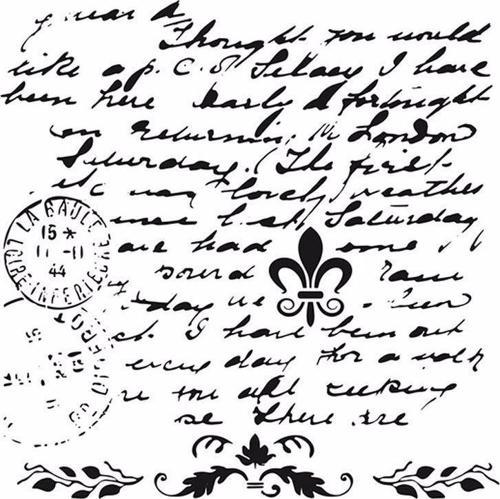 Dear A
Thought you would
like a p.c. of I have
been here nearly a fortnight
am returning to London
Saturday. The first
was lovely weather
since last Saturday
we had some
sound
day we
I have been out
every day for a walk
you all keeping
there are
LA BAULE
15 *
11-11
44
LOIRE-INFERIEURE